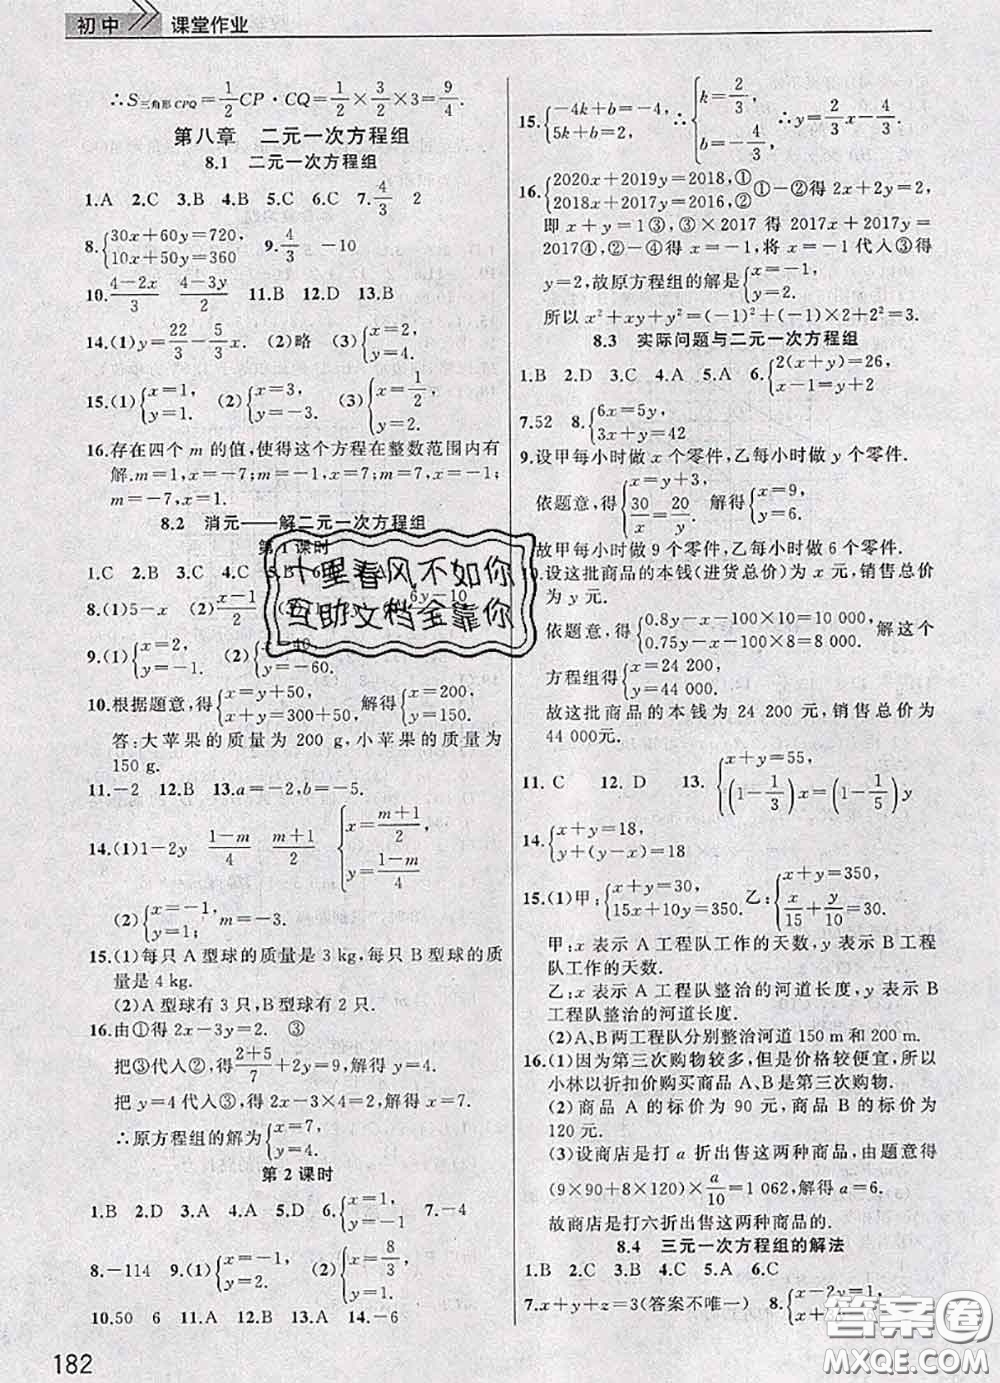 初中 课堂作业
∴S三角形CPQ=1/2CP·CQ=1/2×3/2×3=9/4.
第八章 二元一次方程组
8.1 二元一次方程组
1.A 2.C 3.B 4.B 5.C 6.C 7.4/3 2
8.{30x+60y=720, 10x+50y=360 9.4/3 -10
10.(4-2x)/3 (4-3y)/2 11.B 12.D 13.B
14.(1)y=22/3-5/3x. (2)略 (3){x=2, y=4.
15.(1){x=1, y=1. (2){x=3, y=-3. (3){x=1/2, y=2.
16.存在四个 m 的值,使得这个方程在整数范围内有
解.m=1,x=-7;m=-1,x=7;m=7,x=-1;
m=-7,x=1.
8.2 消元——解二元一次方程组
第1课时
1.C 2.B 3.C 4.C 5.B
8.(1)5-x (2)(x-1)/2 6y-10
9.(1){x=2, y=-1. (2){ y=-60.
10.根据题意,得{x=y+50, x+y=300+50, 解得{x=200, y=150.
答:大苹果的质量为 200 g,小苹果的质量为
150 g.
11.-2 12.B 13.a=-2,b=-5.
14.(1)1-2y (1-m)/4 (m+1)/2 {x=(m+1)/2, y=(1-m)/4
(2){x=-1, y=1; m=-3.
15.(1)每只 A 型球的质量是 3 kg,每只 B 型球的质
量是 4 kg.
(2)A 型球有 3 只,B 型球有 2 只.
16.由①得 2x-3y=2. ③
把③代人②,得(2+5)/7+2y=9,解得 y=4.
把 y=4 代人③,得 2x-3×4=2,解得 x=7.
∴原方程组的解为{x=7, y=4.
第2课时
1.B 2.D 3.A 4.A 5.D 6.{x=1, y=-1 7.-4
8.-114 9.(1){x=-1, y=2. (2){x=8/3, y=1.
10.50 6 11.A 12.B 13.A 14.-6
182
15.{-4k+b=-4, 5k+b=2, ∴{k=2/3, b=-4/3, ∴y=2/3x-4/3.
16.{2020x+2019y=2018,① 2018x+2017y=2016,② ①-②得 2x+2y=2,
即 x+y=1③,③×2017 得 2017x+2017y=
2017④,②-④得 x=-1,将 x=-1 代入③得
y=2,故原方程组的解是{x=-1, y=2.
所以 x²+xy+y²=(-1)²+(-1)×2+2²=3.
8.3 实际问题与二元一次方程组
1.B 2.D 3.C 4.A 5.A 6.{2(x+y)=26, x-1=y+2
7.52 8.{6x=5y, 3x+y=42
9.设甲每小时做 x 个零件,乙每小时做 y 个零件.
依题意,得{x=y+3, 30/x=20/y. 解得{x=9, y=6.
故甲每小时做 9 个零件,乙每小时做 6 个零件.
设这批商品的本钱(进货总价)为 x 元,销售总价
为 y 元.
依题意,得{0.8y-x-100×10=10 000, 0.75y-x-100×8=8 000. 解这个
方程组得{x=24 200, y=44 000.
故这批商品的本钱为 24 200 元,销售总价为
44 000元.
11.C 12.D 13.{x+y=55, (1-1/3)x=(1-1/5)y
14.{x+y=18, y+(y-x)=18
15.(1)甲:{x+y=30, 15x+10y=350. 乙:{x+y=350, x/15+y/10=30.
甲:x 表示 A 工程队工作的天数,y 表示 B 工程
队工作的天数.
乙:x 表示 A 工程队整治的河道长度,y 表示 B
工程队整治的河道长度.
(2)A,B两工程队分别整治河道 150 m 和 200 m.
16.(1)因为第三次购物较多,但是价格较便宜,所以
小林以折扣价购买商品 A、B是第三次购物.
(2)商品 A 的标价为 90 元,商品 B 的标价为
120 元.
(3)设商店是打 a 折出售这两种商品,由题意得
(9×90+8×120)×a/10=1 062,解得 a=6.
故商店是打六折出售这两种商品的.
8.4 三元一次方程组的解法
1.B 2.C 3.C 4.B 5.A 6.C
7.x+y+z=3(答案不唯一) 8.{x-2y=1,
十里春风不如你
互助文档全靠你
答案圈
MXQE.COM